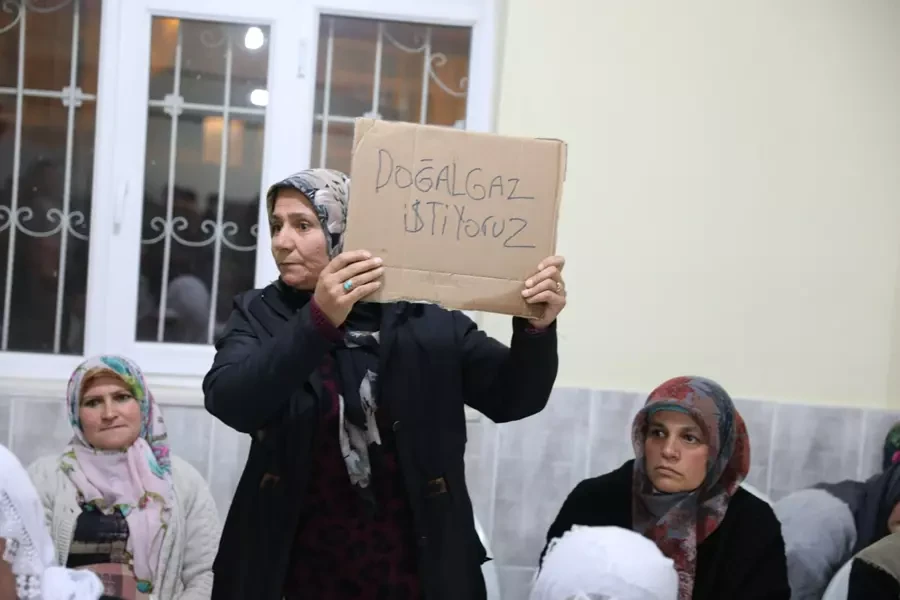 DOĞALGAZ
iSTiYoRUZ